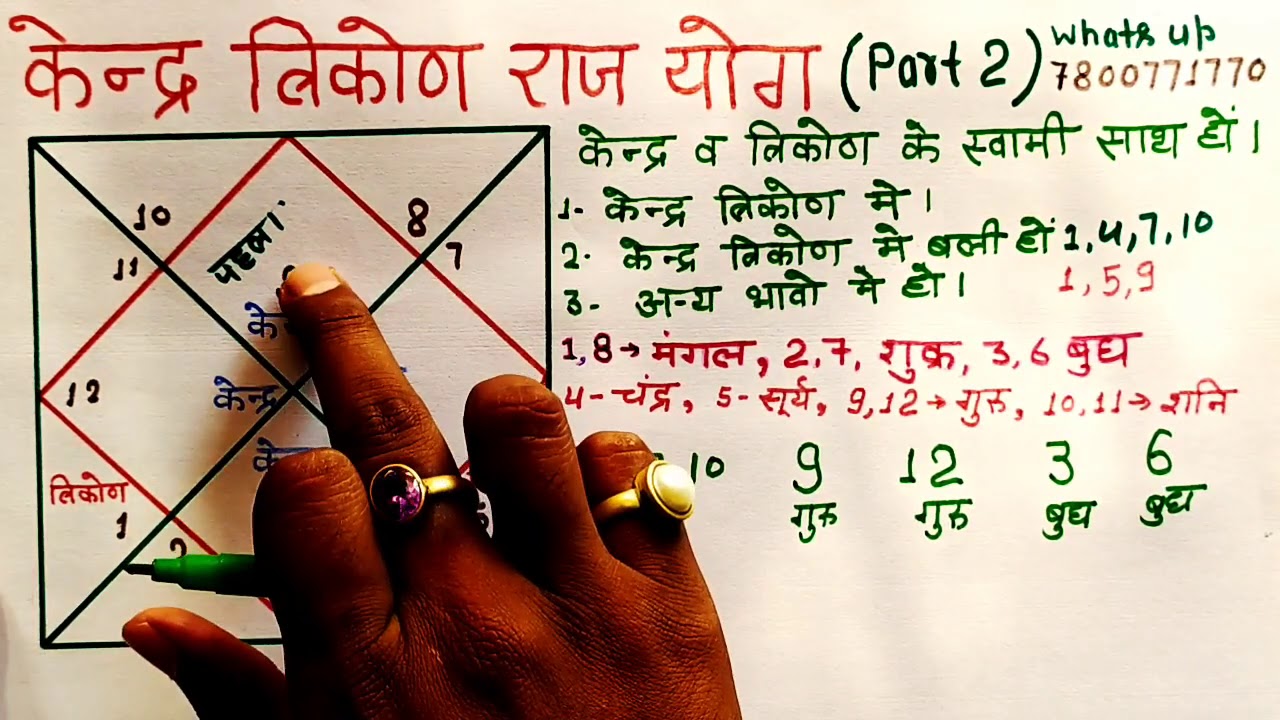 केन्द्र त्रिकोण राज योग (Part 2)
whats up
7800771770
केन्द्र व त्रिकोण के स्वामी साथ हों।
1- केन्द्र त्रिकोण मे।
2- केन्द्र त्रिकोण मे बली हों 1,4,7,10
3- अन्य भावो मे हो। 1,5,9
1,8→ मंगल, 2,7, शुक्र, 3,6 बुध
4-चंद्र, 5-सूर्य, 9,12→गुरु, 10,11→ शनि
10 9 12 3 6
गुरु गुरु बुध बुध
10 8
11 पहला 7
केन्द्र
12
त्रिकोण
1
2